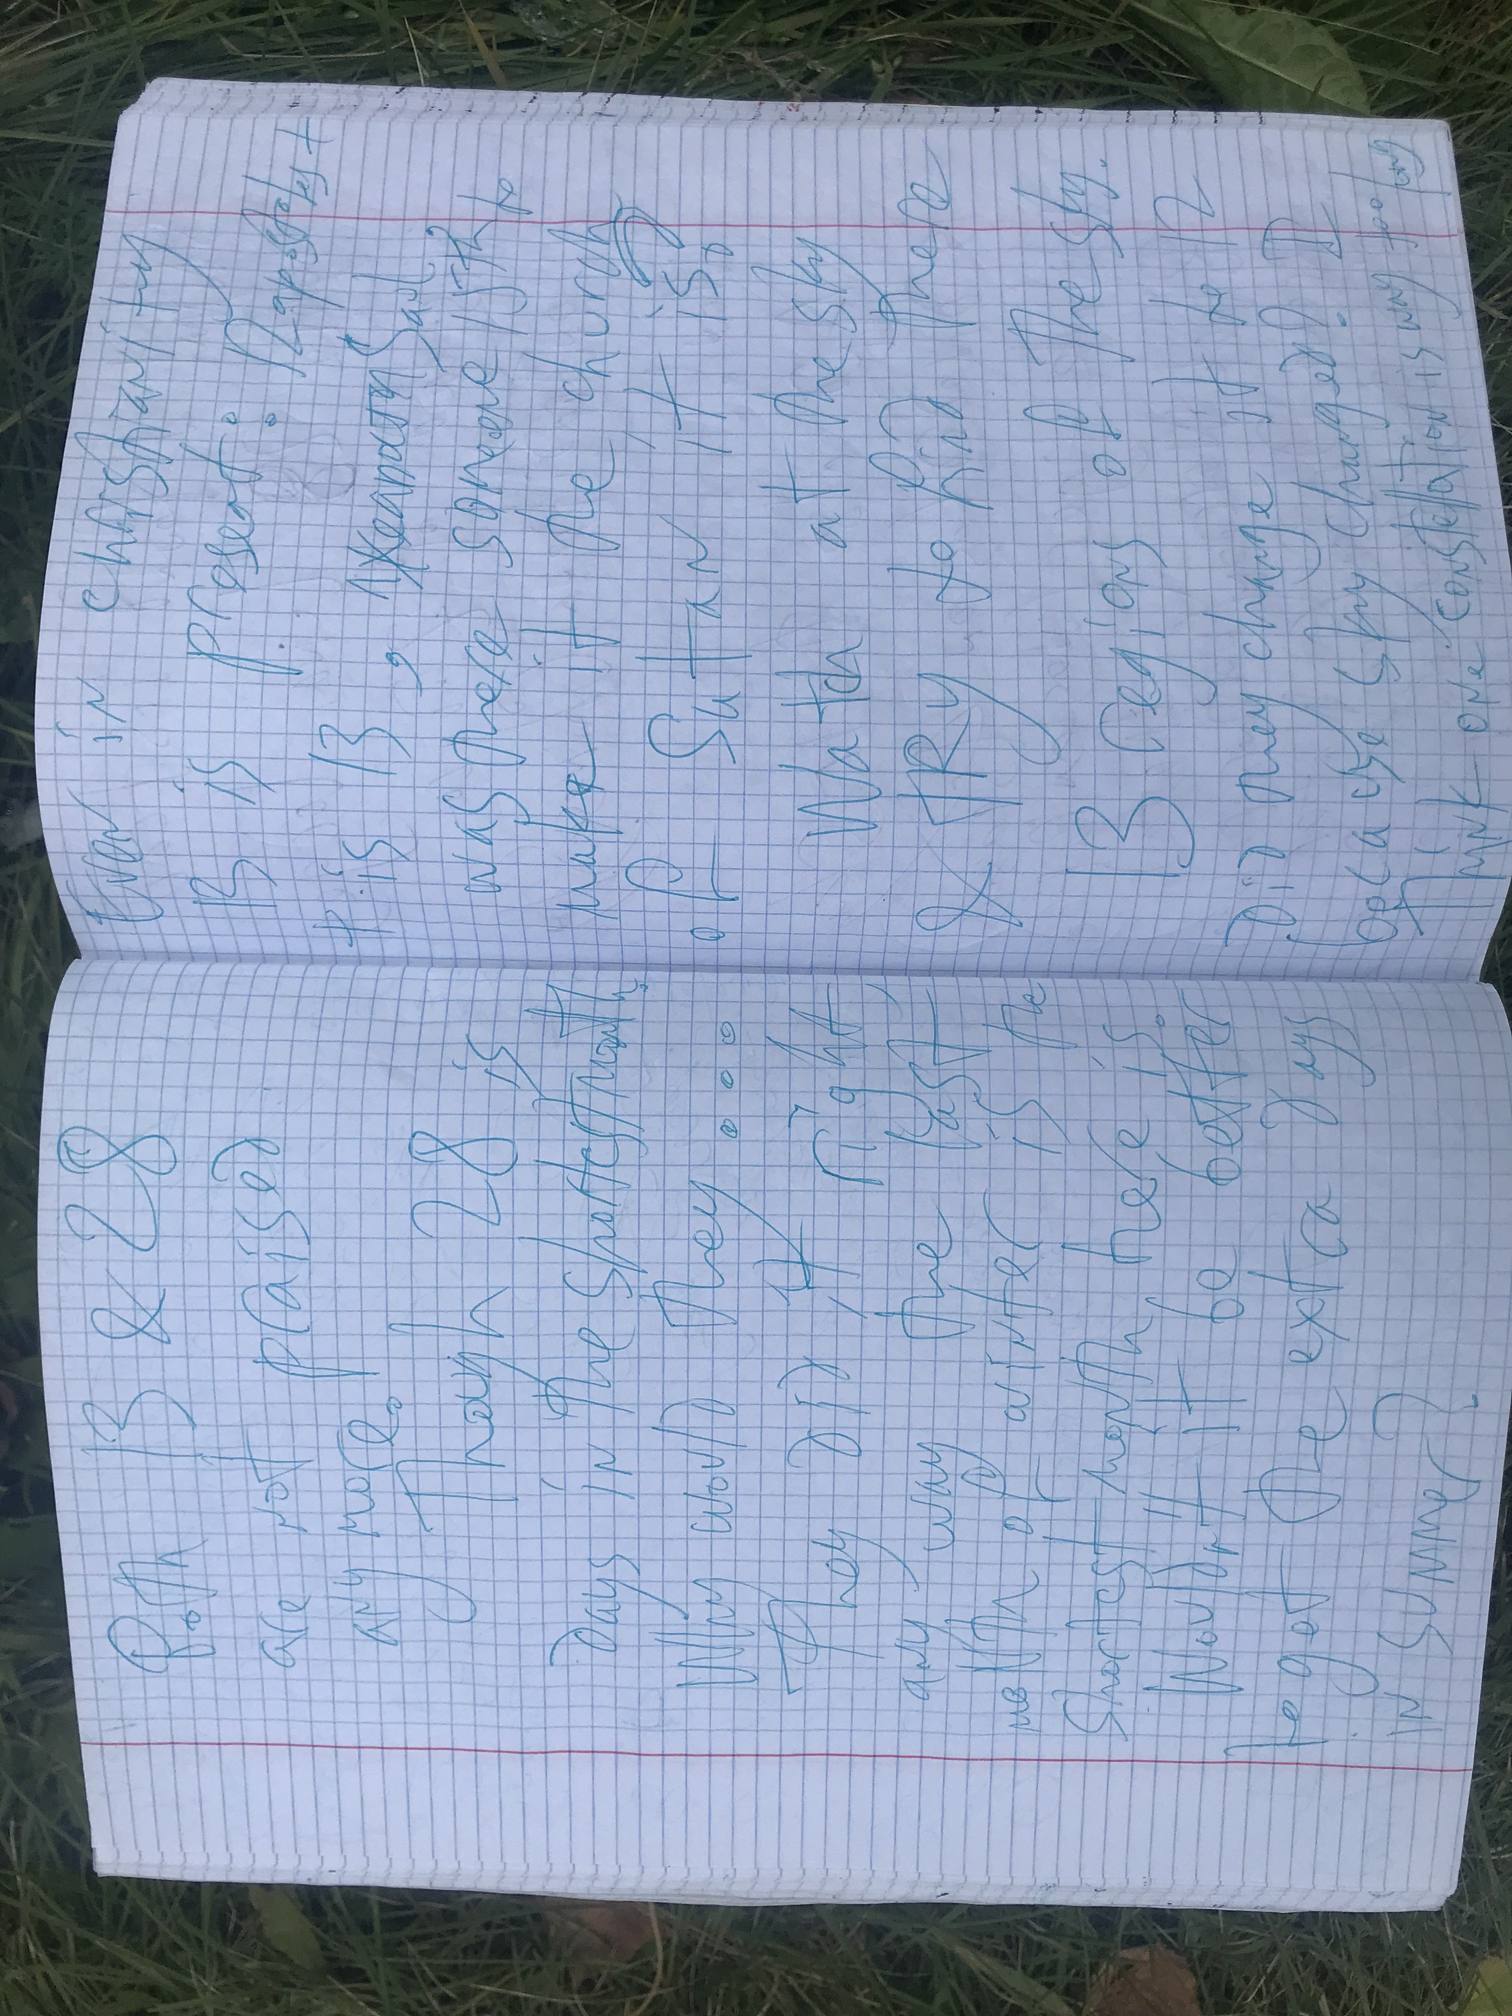 Both 13 & 28
are not praised
any more.
Though 28 is
Days in the shortest month.
Why would they ...
They did it right
any way the last
month of winter is the
shortest month here is.
Wouldn't it be better
to get the extra days
in summer?
Even in christianity
13 is present: 12 apostoles +
+ is 13,
was there someone 15th to
make it the church
of Satan it is?
Watch at the sky
& TRY to find there
13 regions of the sky.
Did they change it to 12
because sky changed? I
think one constellation is way too long